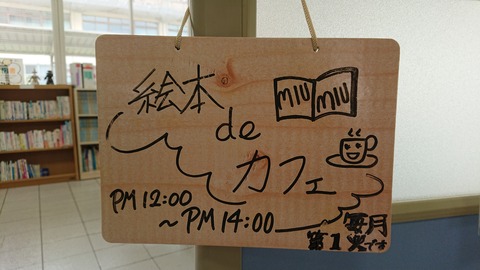 絵本
MIU MIU
de
カフェ
PM 12:00
～PM 14:00
毎月
第1火です